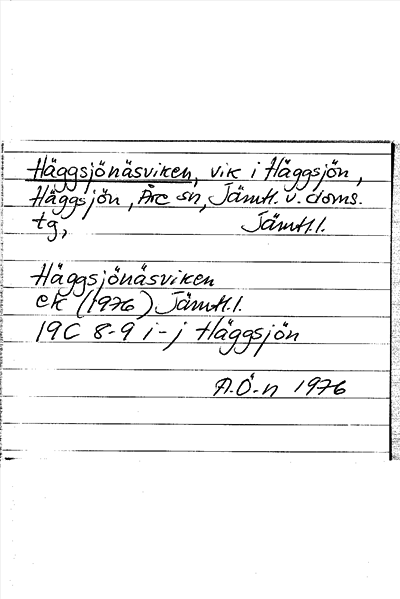 Häggsjönäsviken, vik i Häggsjön,
Häggsjön, Åre sn, Jämtl. v. doms.
tg, Jämtl.l.
Häggsjönäsviken
ek (1976) Jämtl.l.
19C 8-9 i-j Häggsjön
A.Ö-n 1976